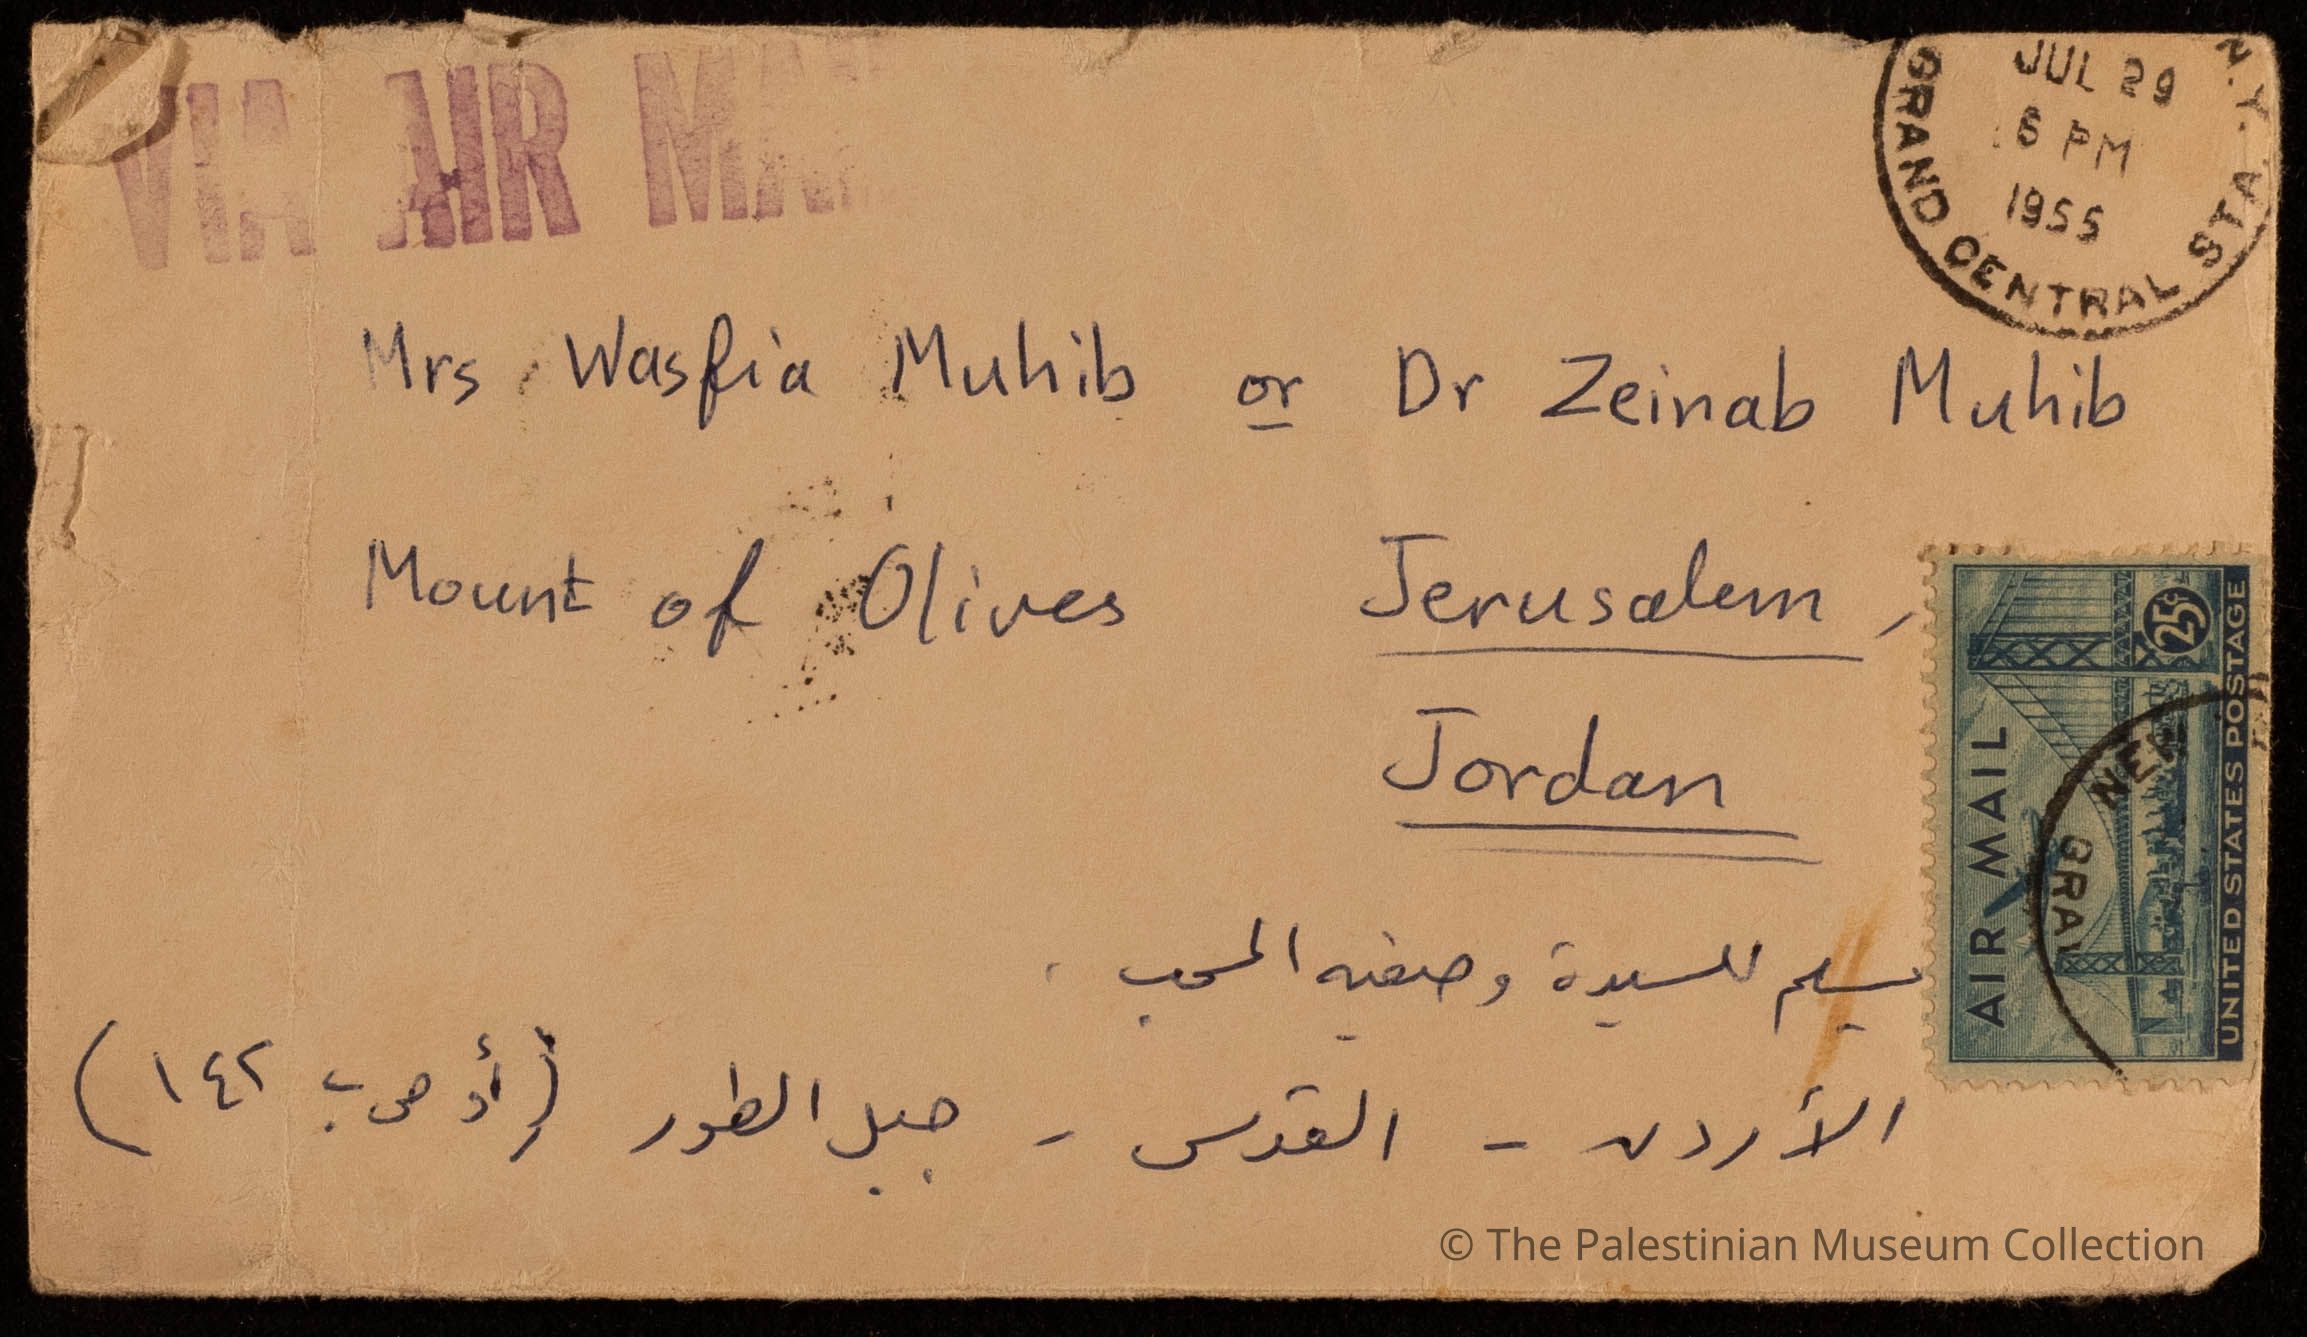 VIA AIR MAIL
GRAND CENTRAL STA. N.Y.
JUL 29
6 PM
1955
Mrs Wasfia Muhib or Dr Zeinab Muhib
Mount of Olives Jerusalem,
Jordan
25¢
AIR MAIL
UNITED STATES POSTAGE
NEW
GRAN
يسلم للسيدة وصفيه المحب .
الأردن - القدس - جبل الطور (أو ص ب ١٤٢)
© The Palestinian Museum Collection